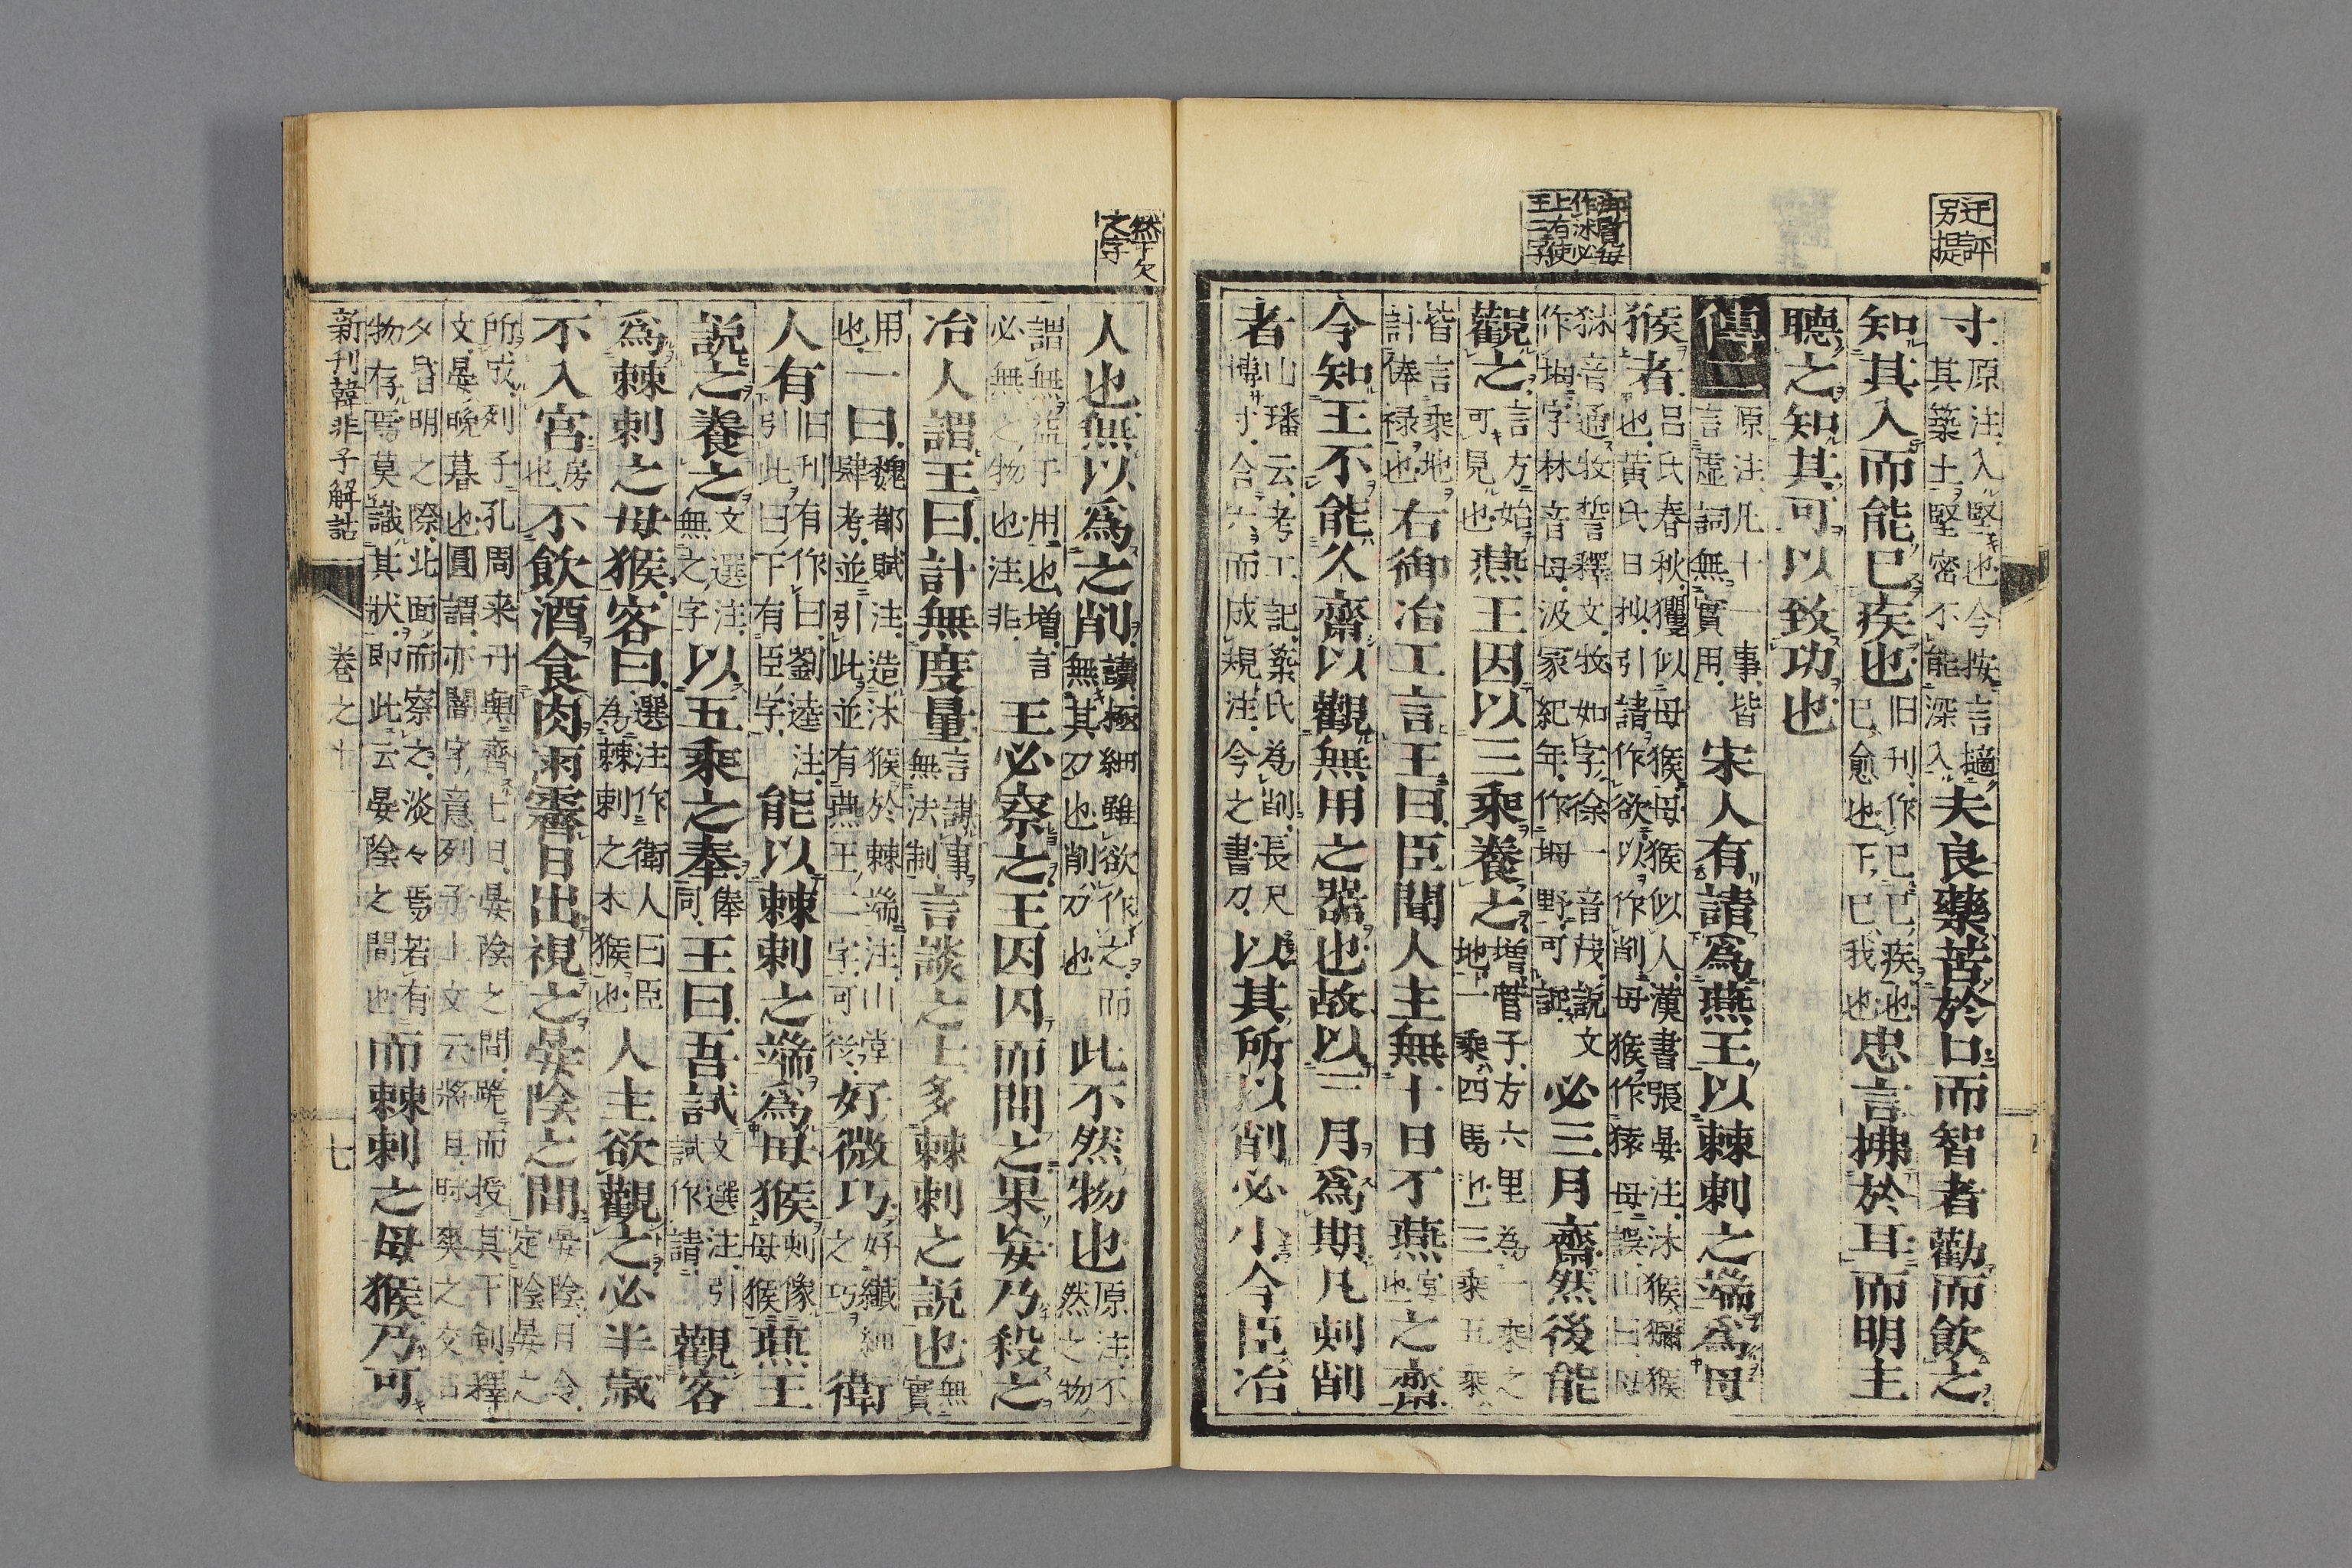 迂評
另提
寸原注入堅也今按言擿夫良藥苦於口而智者勸而飲之
其築土堅密不能深入
知其入而能已疾也旧刊作已已疾也忠言拂於耳而明主
已愈也下已我也
聽之知其可以致功也
傳二原注凡十一事皆宋人有請爲燕王以棘刺之端爲母
言虛詞無實用
猴者呂氏春秋玃似母猴母猴似人漢書張晏注沐猴獼猴
也黃氏日拟引請作欲以作削母猴作猿母誤山曰母
狇音通牧誓釋文牧如字徐一音茂説文必三月齋然後能
作坶字林音母汲冢紀年作坶野可証
作沐必
上有使
王二字
觀之言方始燕王因以三乘養之增管子方六里為一乘之
可見也地一乘四馬也三乘五乘
皆言乘地右御冶工言王曰臣聞人主無十日不燕宴之齋
計俸禄也也
今知王不能久齋以觀無用之器也故以三月爲期凡刺削
者山璠云考工記築氏為削長尺以其所以削必小今臣冶
博寸合六而成規注今之書刀
然下欠
之字
人也無以爲之削讀極細雖欲作之而此不然物也原注不
無其刀也削刀也然之物
謂無益于用也增言王必察之王因囚而問之果妄乃殺之
必無之物也注非
冶人謂王曰計無度量言謀事言談之士多棘刺之説也無
無法制實
用一曰魏都賦注造沐猴於棘端注山堂好微巧好纖細衛
也肆考並引此並有燕王二字可從之巧
人有旧刊有作曰劉逵注能以棘刺之端爲母猴刺像燕王
引此曰下有臣字母猴
説之養之文選注以五乘之奉俸王曰吾試文選注引觀客
無之字同試作請
爲棘刺之母猴客曰選注作衛人曰臣人主欲觀之必半歲
為棘刺之木猴也
不入宮房不飲酒食肉雨霽日出視之晏陰之間晏陰月令
也定陰晏之
所成列子孔周来丹與齊七日晏陰之間跪而授其下劍擇
文晏晚暮也圓謂亦闇字意列子上文云將旦昧爽之交日
夕昏明之際北面而察之淡々焉若有而棘刺之母猴乃可
物存焉莫識其狀即此云晏陰之間也
新刊韓非子解詁　卷之十　七